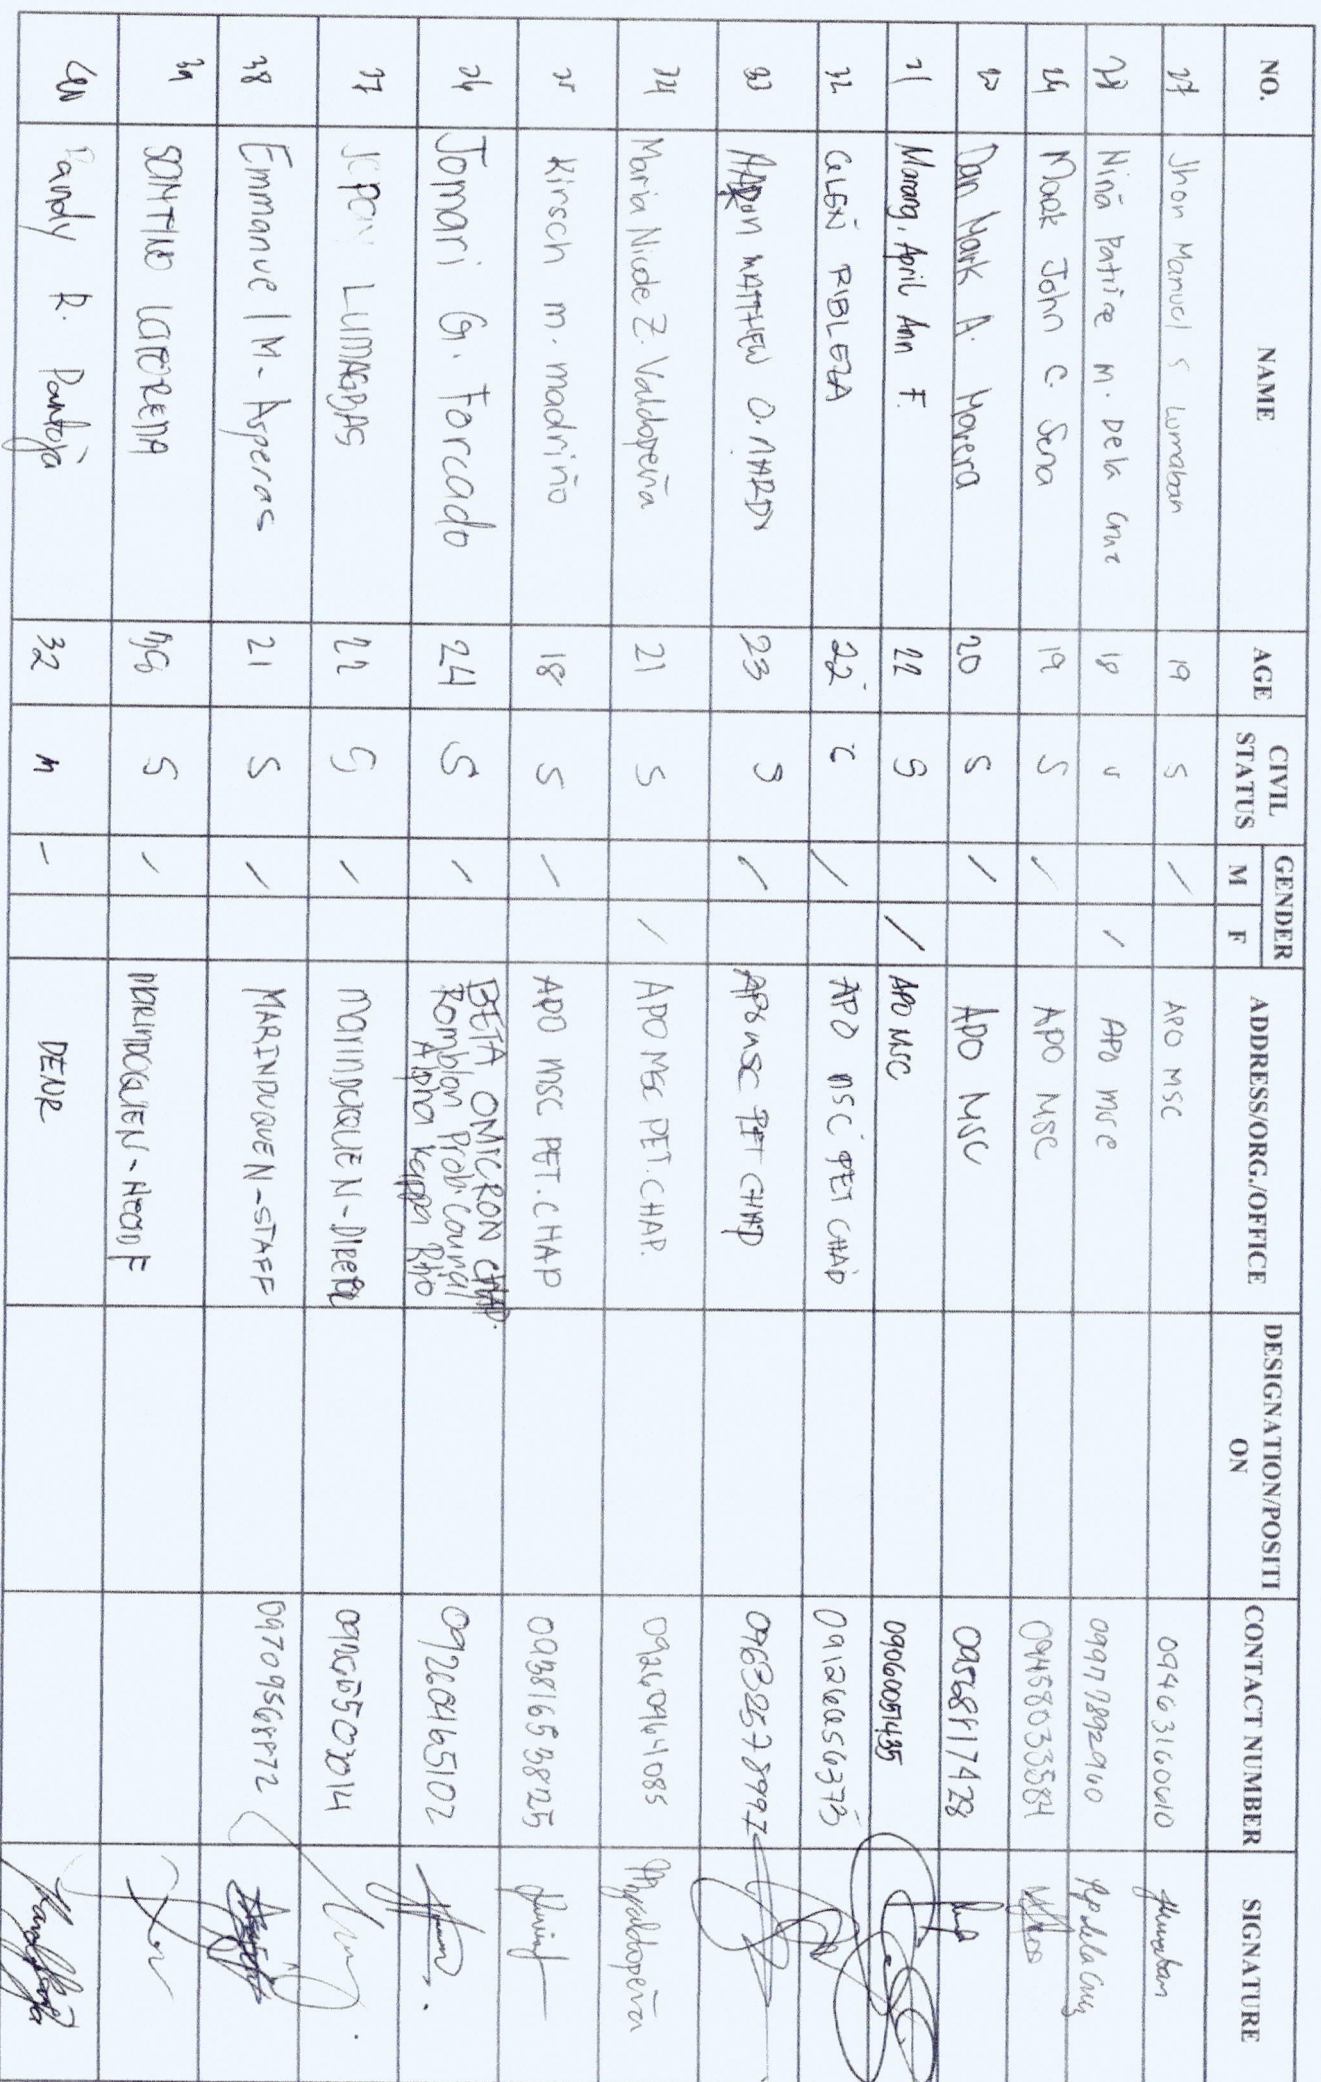 NO. NAME AGE CIVIL STATUS GENDER M F ADDRESS/ORG./OFFICE DESIGNATION/POSITI ON CONTACT NUMBER SIGNATURE
27 Jhon Manuel S Lumaban 19 S / APO MSC 09463160610
28 Niña Patrice M. Dela Cruz 18 S / APO MSC
29 Mark John C. Sena 19 S / APO MSC 09458033584
30 Dan Mark A. 20 S / APO MSC
31 Marang, April Ann F. 22 S / APO MSC 09060051435
32 RIBLEZA 22 / APO MSC PET CHAP 09126656373
33 MATTHEW O. 23 S / APO MSC PET CHAP 09638578997
34 Maria Nicole Z. Valdopeña 21 S / APO MSC PET. CHAP. 09260964085 Mnvaldopeña
35 Kirsch M. Madriño 18 S / APO MSC PET. CHAP 09381653825
36 Jomari G. Forcado 24 S / BETA OMICRON CHAP.
Romblon Prob. Council
Alpha Kappa Rho 09260465102
37 LUMAGBAS 22 S / MARINDUQUEN -
38 Emmanuel M. Asperas 21 S / MARINDUQUEN - STAFF 09709568872
39 SANTINO S / MARINDUQUEN -
40 Randy R. Pantoja 32 M - DENR